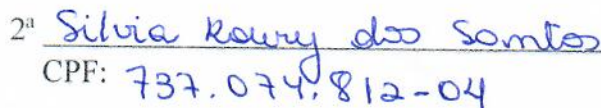 2ª Silvia Koury dos Santos
CPF: 737.074.812-04